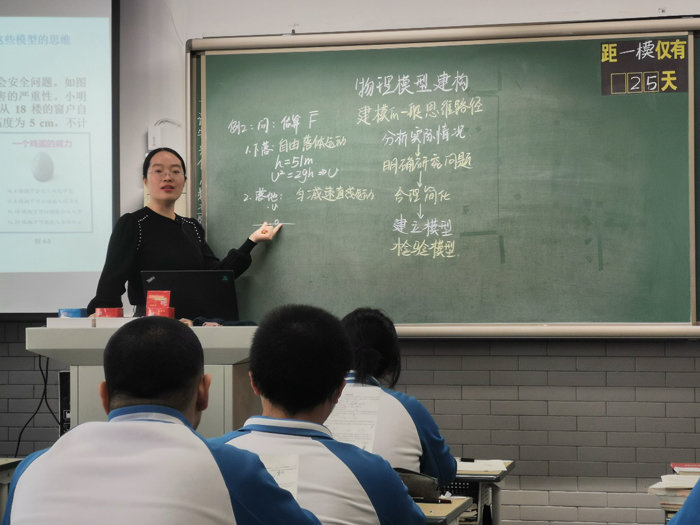 些模型的思维
会安全问题。如图
害的严重性。小明
从 18 楼的窗户自
高度为 5 cm，不计
一个鸡蛋的威力
物理模型建构
建模的一般思维路径
分析实际情况
↓
明确研究问题
↓
合理简化
↓
建立模型
检验模型
例2：问：估算 F
1.下落：自由落体运动
h=51m
v²=2gh⇒v
2.落地：匀减速直线运动
距一模仅有
25天